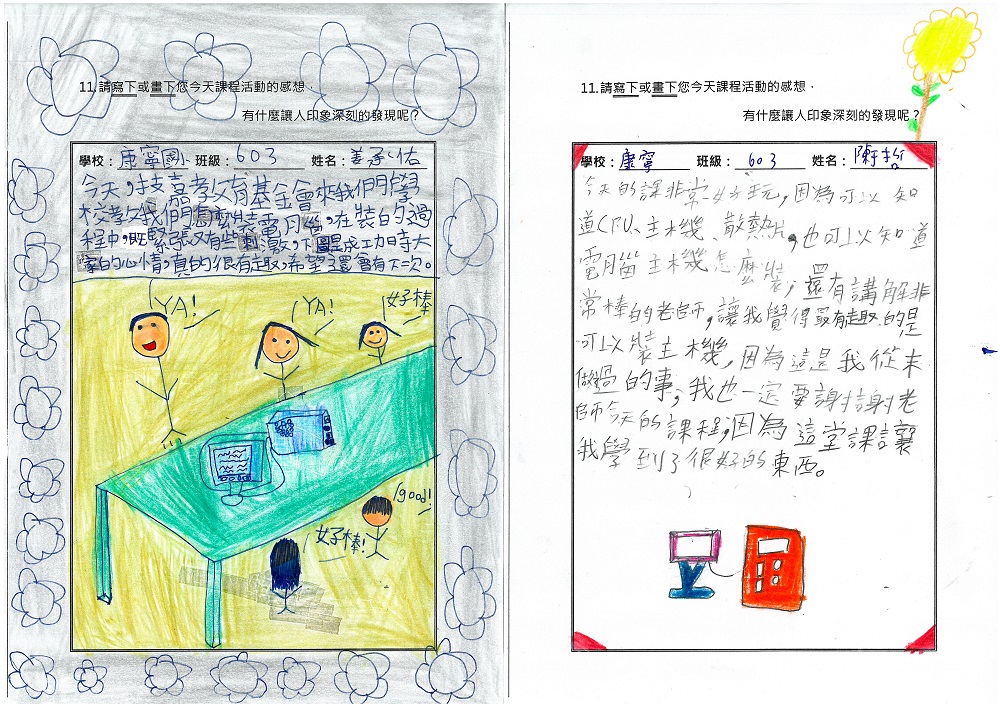 11. 請寫下或畫下您今天課程活動的感想，
有什麼讓人印象深刻的發現呢？
學校：康寧國小 班級：603 姓名：姜承佑
今天，技嘉教育基金會來我們學
校教我們怎麼裝電腦，在裝的過
程中，既緊張又有些刺激，但是成功時大
家的心情，真的很有趣，希望還會有下次。
YA!
YA!
好棒
good!
好棒!
11. 請寫下或畫下您今天課程活動的感想，
有什麼讓人印象深刻的發現呢？
學校：康寧 班級：603 姓名：陳
今天的課非常好玩，因為可以知
道CPU、主機、散熱片，也可以知道
電腦主機怎麼裝，還有講解非
常棒的老師，讓我覺得最有趣的是
可以裝主機，因為這是我從未
做過的事，我也一定要謝謝老
師今天的課程，因為這堂課讓
我學到了很好的東西。